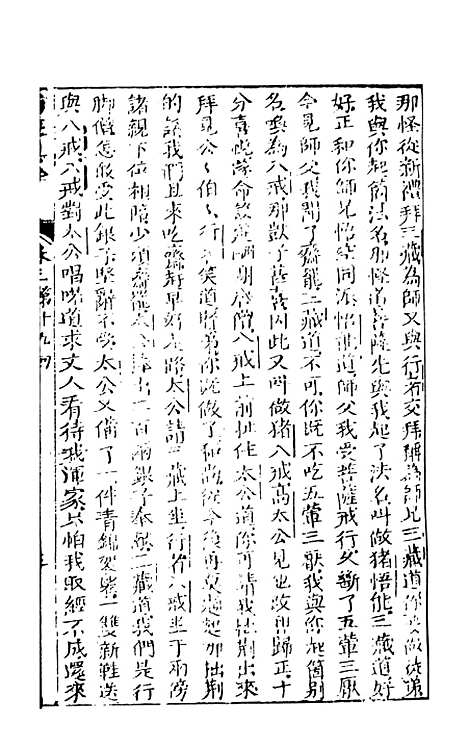 那怪從新禮拜三藏為師又與行者交拜稱為師兄三藏道你要做徒弟
我與你起箇法名那怪道菩薩先與我起了法名叫做猪悟能三藏道好
好正和你師兄悟空同派悟能道師父我受菩薩戒行久斷了五葷三厭
今見師父我開了齋罷三藏道不可你既不吃五葷三厭我與你起箇別
名喚為八戒那獃子甚喜因此又叫做猪八戒高太公見他改邪歸正十
分喜悅遂命設筵酬謝唐僧八戒上前扯住太公道你可請我拙荆出來
拜見公公伯伯行者笑道賢弟你既做了和尚從今後再莫題起那拙荆
的話我們且來吃齋趕早好走路太公請三藏上坐行者八戒坐于兩傍
諸親下位相陪少頃齋罷太公捧出二百兩銀子奉獻三藏道我們是行
脚僧怎敢受此銀子堅辭不受太公又備了一件青錦袈裟一雙新鞋送
與八戒八戒對太公唱喏道求丈人看待我渾家只怕我取經不成還來
卷三第十九回